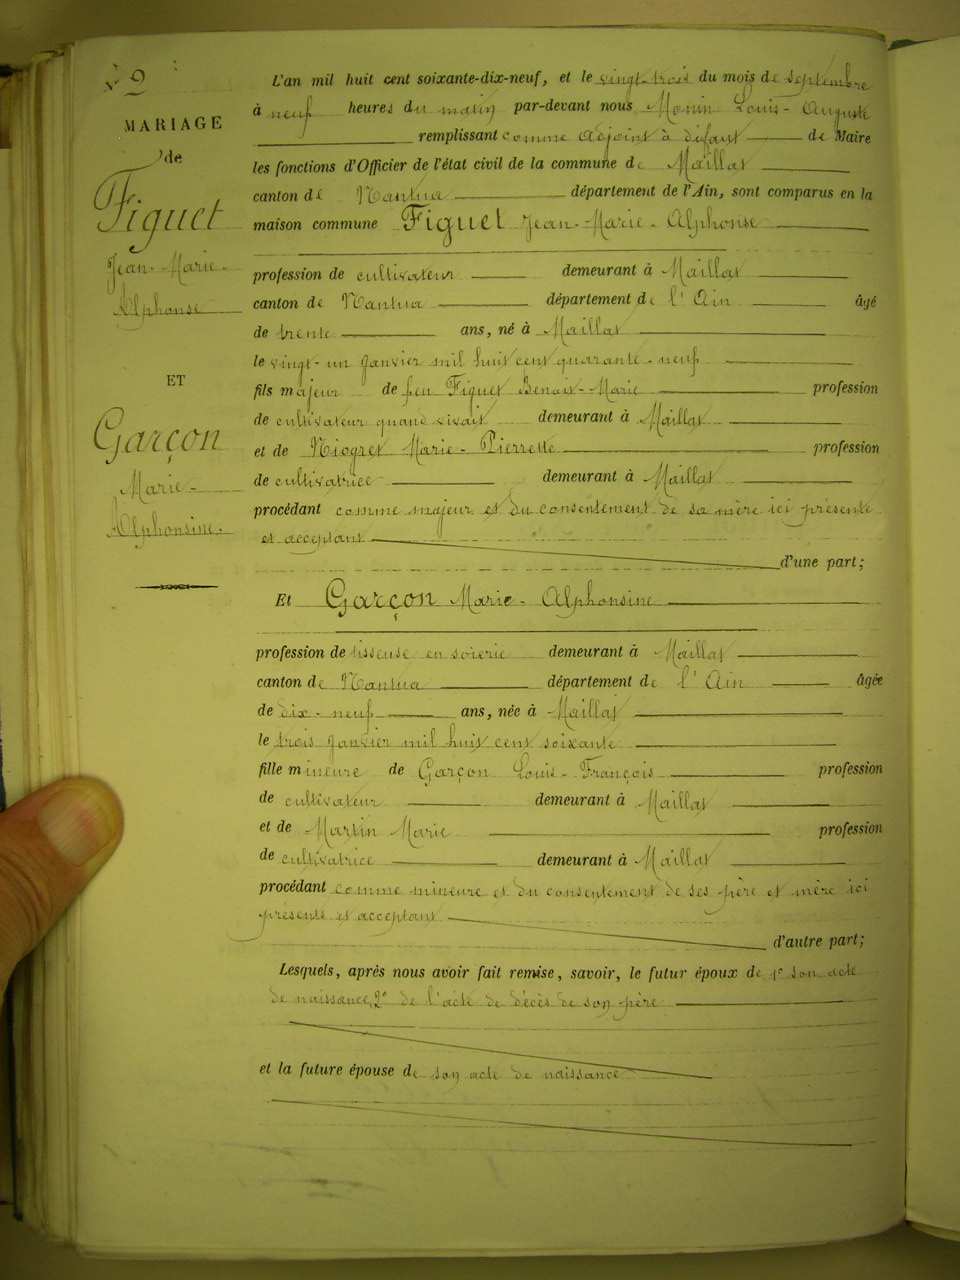 N° 9
MARIAGE
de
Figuet
Jean-Marie-
Alphonse
ET
Garçon
Marie-
Alphonsine.
L'an mil huit cent soixante-dix-neuf, et le vingt-trois du mois de septembre
à neuf heures du matin par-devant nous Monin Louis-Auguste
remplissant comme adjoint à défaut de Maire
les fonctions d'Officier de l'état civil de la commune de Maillat
canton de Nantua département de l'Ain, sont comparus en la
maison commune Figuet Jean-Marie-Alphonse
profession de cultivateur demeurant à Maillat
canton de Nantua département de l'Ain âgé
de trente ans, né à Maillat
le vingt-un janvier mil huit cent quarante-neuf
fils majeur de feu Figuet Benoit-Marie profession
de cultivateur quand vivait demeurant à Maillat
et de Niogret Marie-Pierrette profession
de cultivatrice demeurant à Maillat
procédant comme majeur et du consentement de sa mère ici présente
et acceptant
d'une part;
Et Garçon Marie-Alphonsine
profession de tisseuse en soierie demeurant à Maillat
canton de Nantua département de l'Ain âgée
de dix-neuf ans, née à Maillat
le trois janvier mil huit cent soixante
fille mineure de Garçon Louis-François profession
de cultivateur demeurant à Maillat
et de Martin Marie profession
de cultivatrice demeurant à Maillat
procédant comme mineure et du consentement de ses père et mère ici
présents et acceptant
d'autre part;
Lesquels, après nous avoir fait remise, savoir, le futur époux de 1° son acte
de naissance, 2° de l'acte de décès de son père
et la future épouse de son acte de naissance